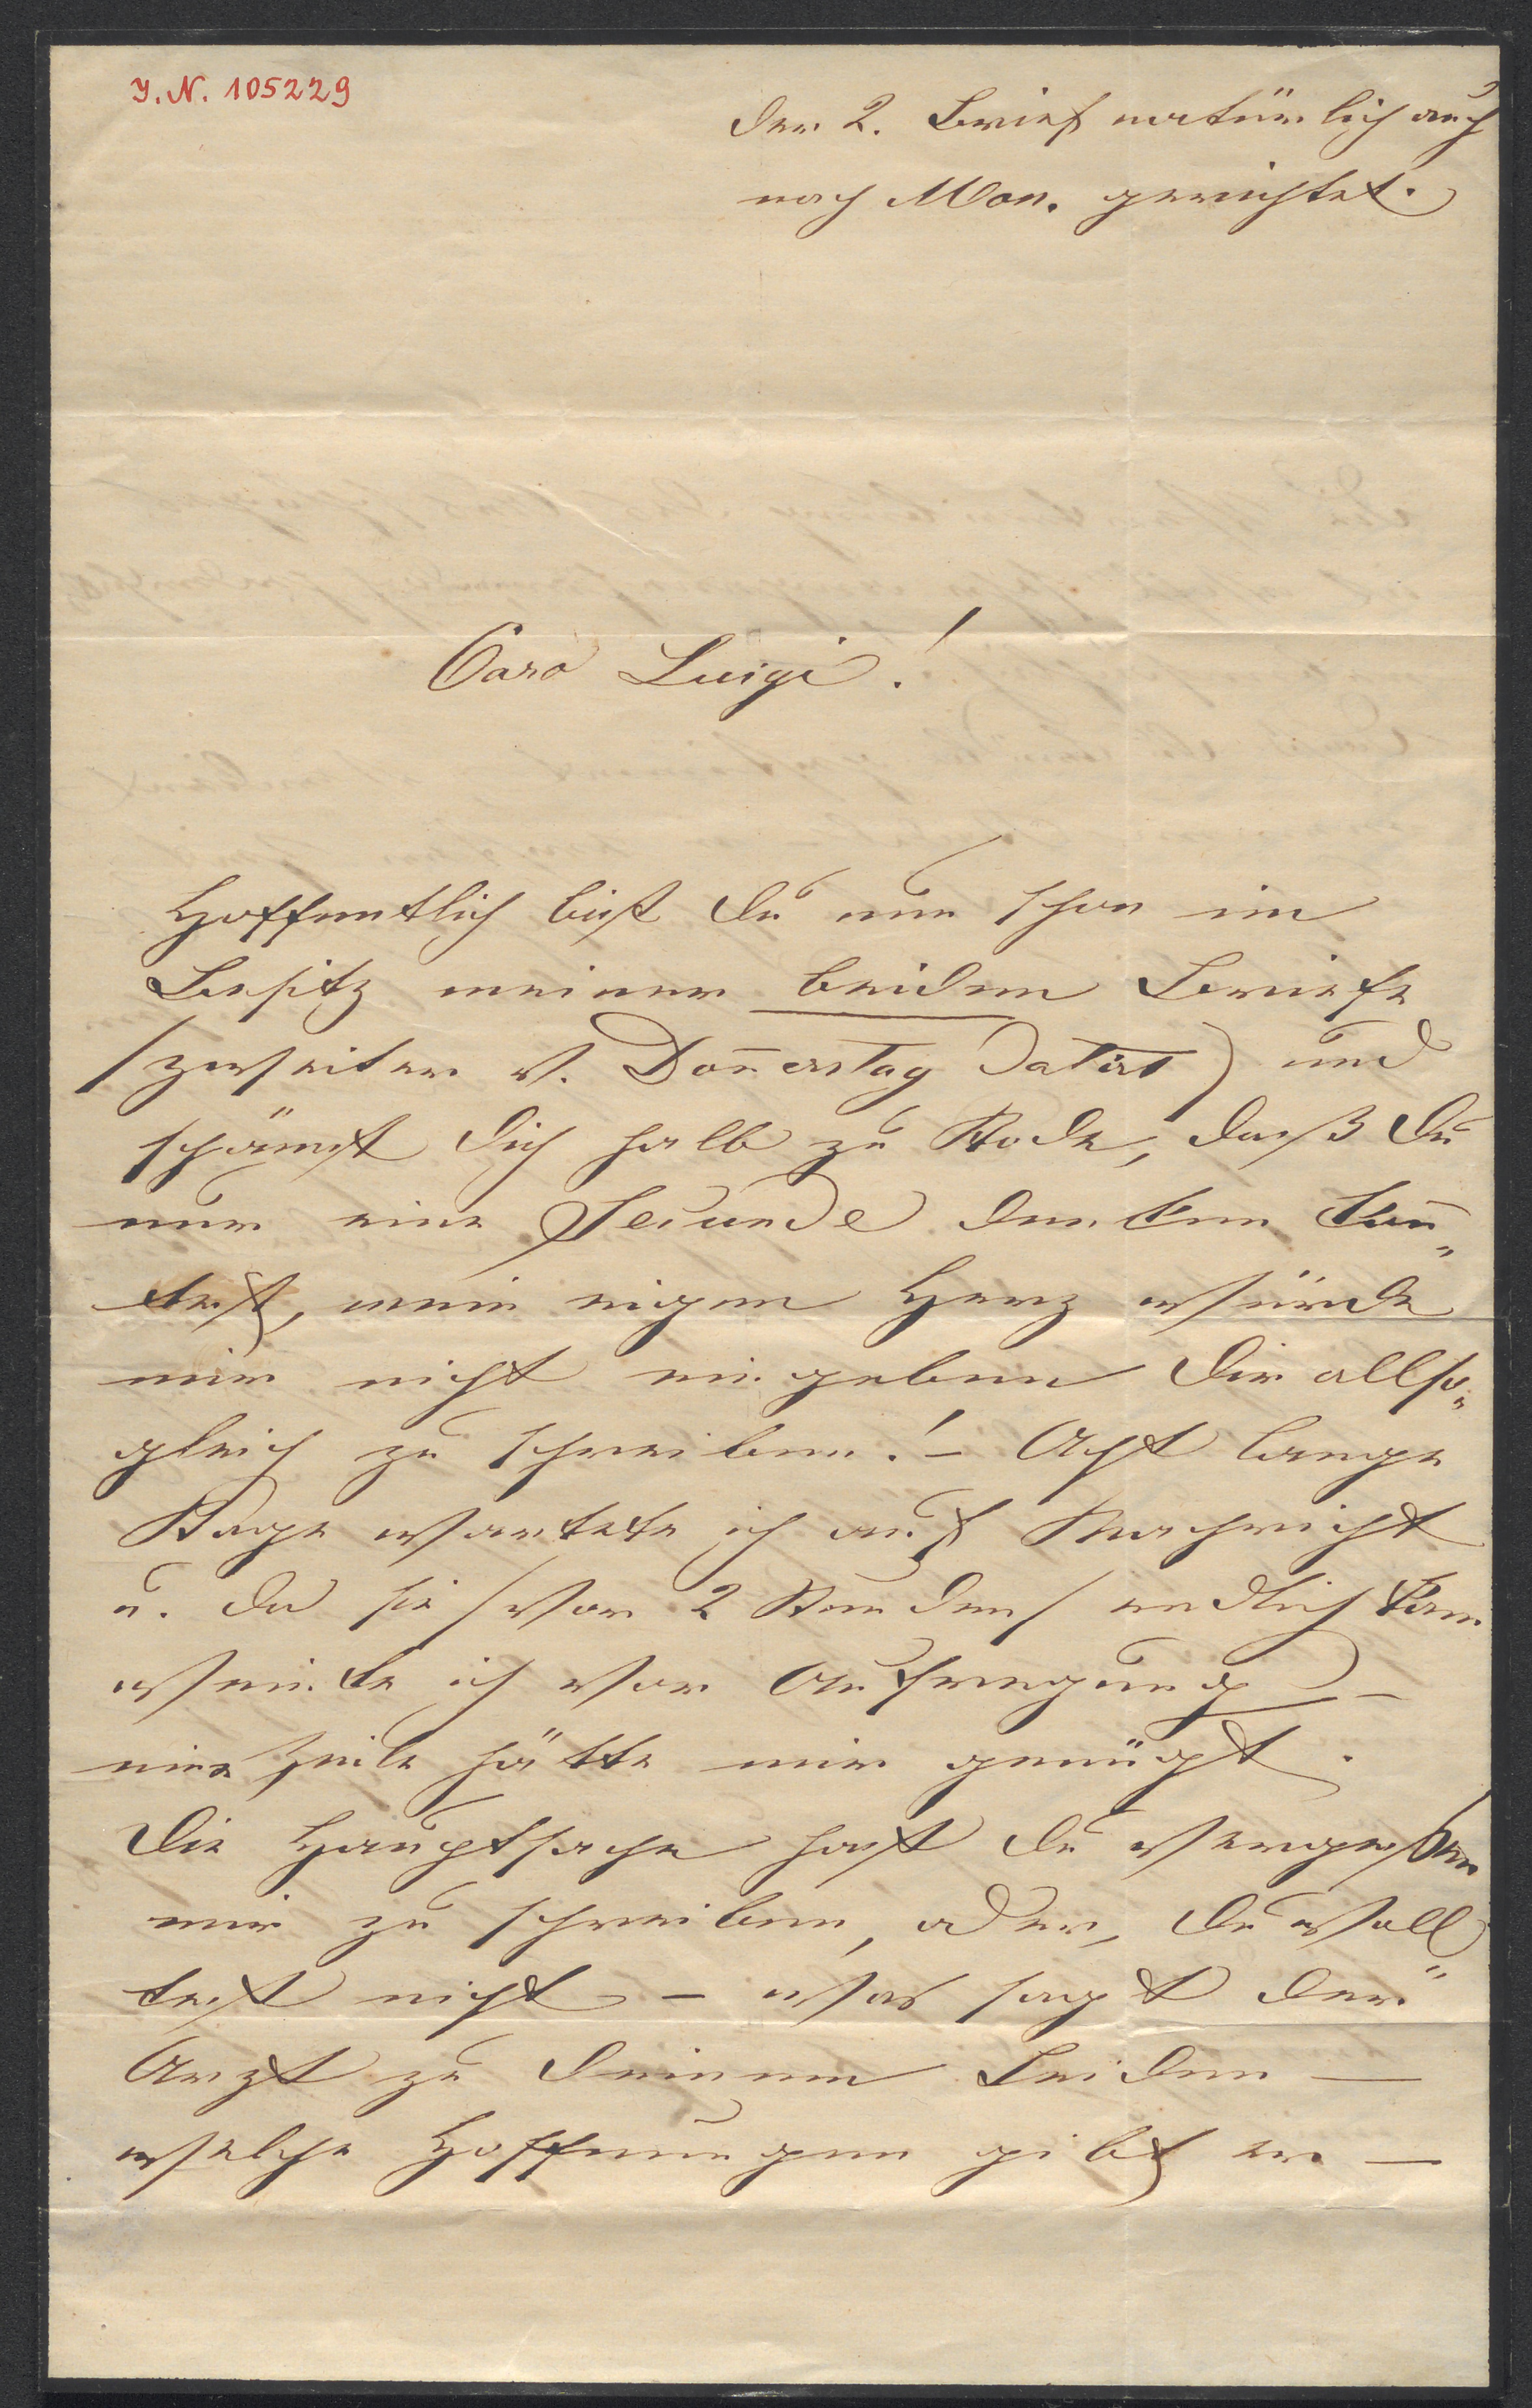 I. N. 105229
Der 2. Brief natürlich auch
nach Mon. gerichtet.
Caro Luigi!
Hoffentlich bist Du nun schon im
Besitz meiner beiden Briefe
(zweiter v. Don̄erstag datirt) und
schämst Dich halb zu Tode, daß Du
nur eine Secunde denken kon̄„
test, mein eigen Herz würde
mir nicht eingeben Dir allso„
gleich zu schreiben! – Acht lange
Tage wartete ich auf Nachricht
u. da sie /vor 2 Stunden/ endlich kam
weinte ich vor Aufregung –
eine Zeile hätte mir genügt.
Die Hauptsache hast Du vergessen
mir zu schreiben, oder, Du woll„
test nicht – was sagt der
Arzt zu Deinem Leiden –
welche Hoffnungen gibt er –